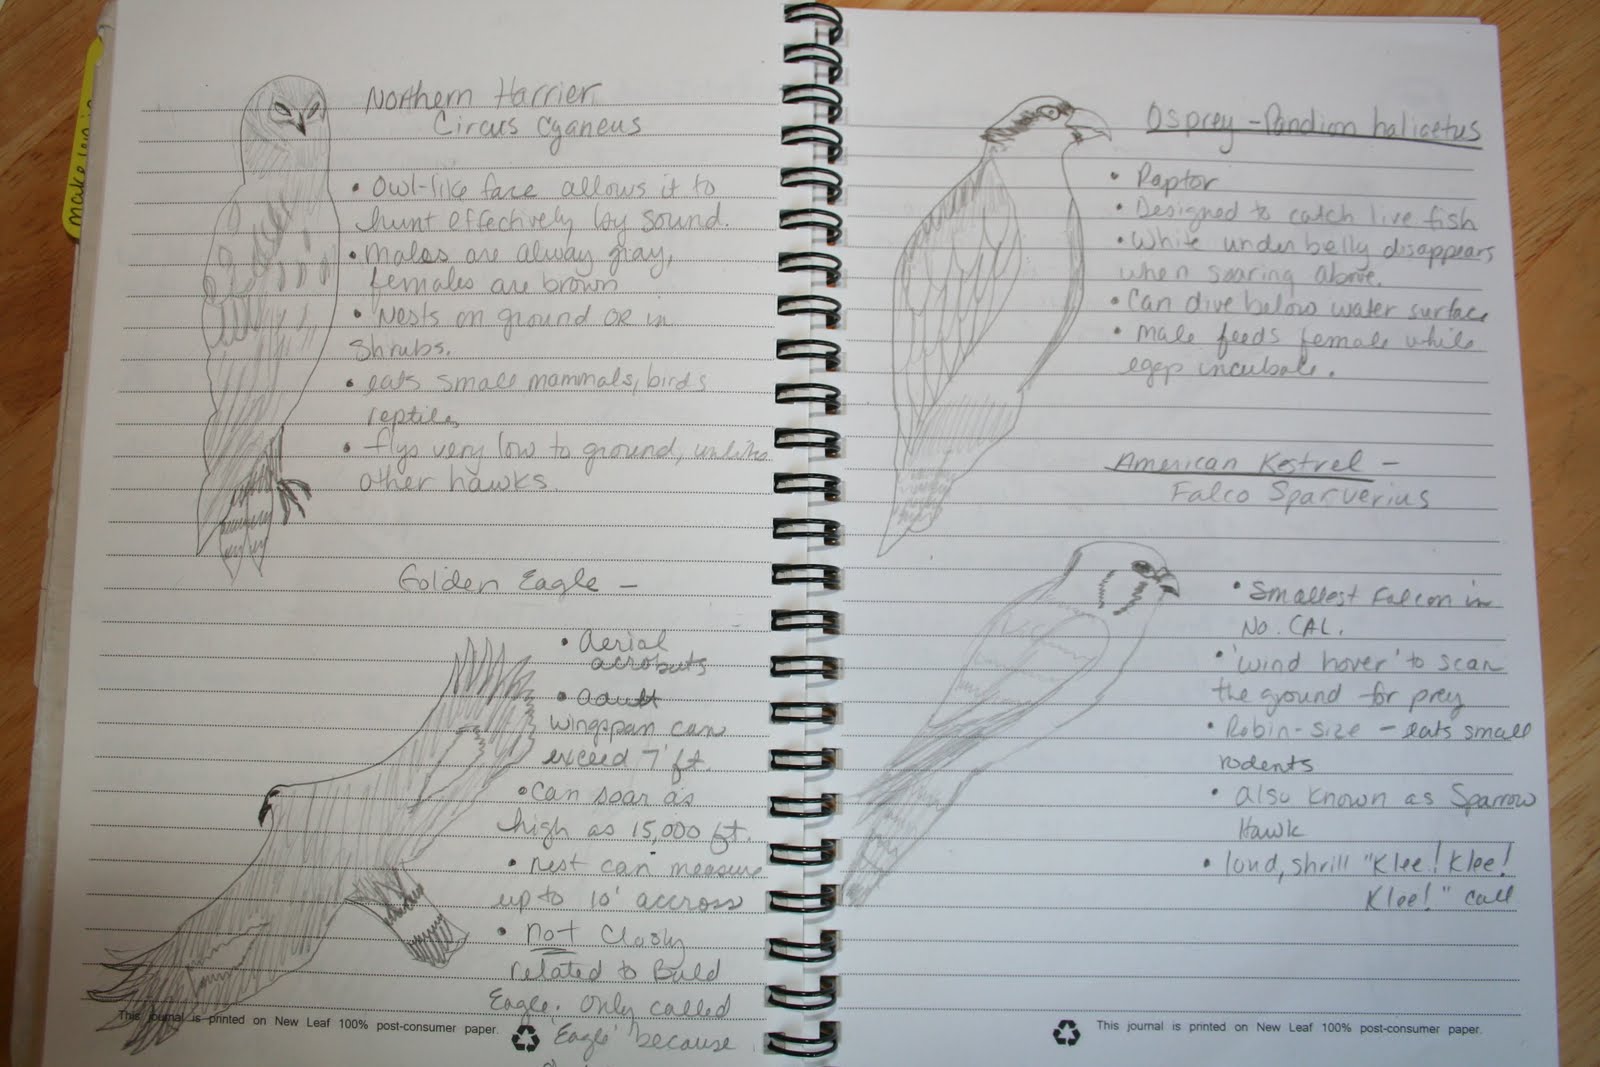 make join in
Northern Harrier
Circus Cyaneus
• Owl-like face allows it to
hunt effectively by sound.
• Males are alway gray,
females are brown
• Nests on ground OR in
Shrubs.
• eats small mammals, birds
reptiles
• flys very low to ground, unlike
other hawks.
Golden Eagle –
• Aerial
acrobats
• adult
wingspan can
exceed 7' ft.
• Can soar as
high as 15,000 ft.
• nest can measure
up to 10' accross
• not Closly
related to Bald
Eagle. Only called
'Eagle' because
This journal is printed on New Leaf 100% post-consumer paper.
Osprey – Pandion haliaetus
• Raptor
• Designed to catch live fish
• White under belly disappears
when soaring above.
• Can dive below water surface
• male feeds female while
eggs incubate.
American Kestrel –
Falco Sparverius
• Smallest Falcon in
No. CAL.
• 'wind hover' to scan
the ground for prey
• Robin-size – eats small
rodents
• also known as Sparrow
Hawk
• loud, shrill "Klee! Klee!
Klee!" call
This journal is printed on New Leaf 100% post-consumer paper.